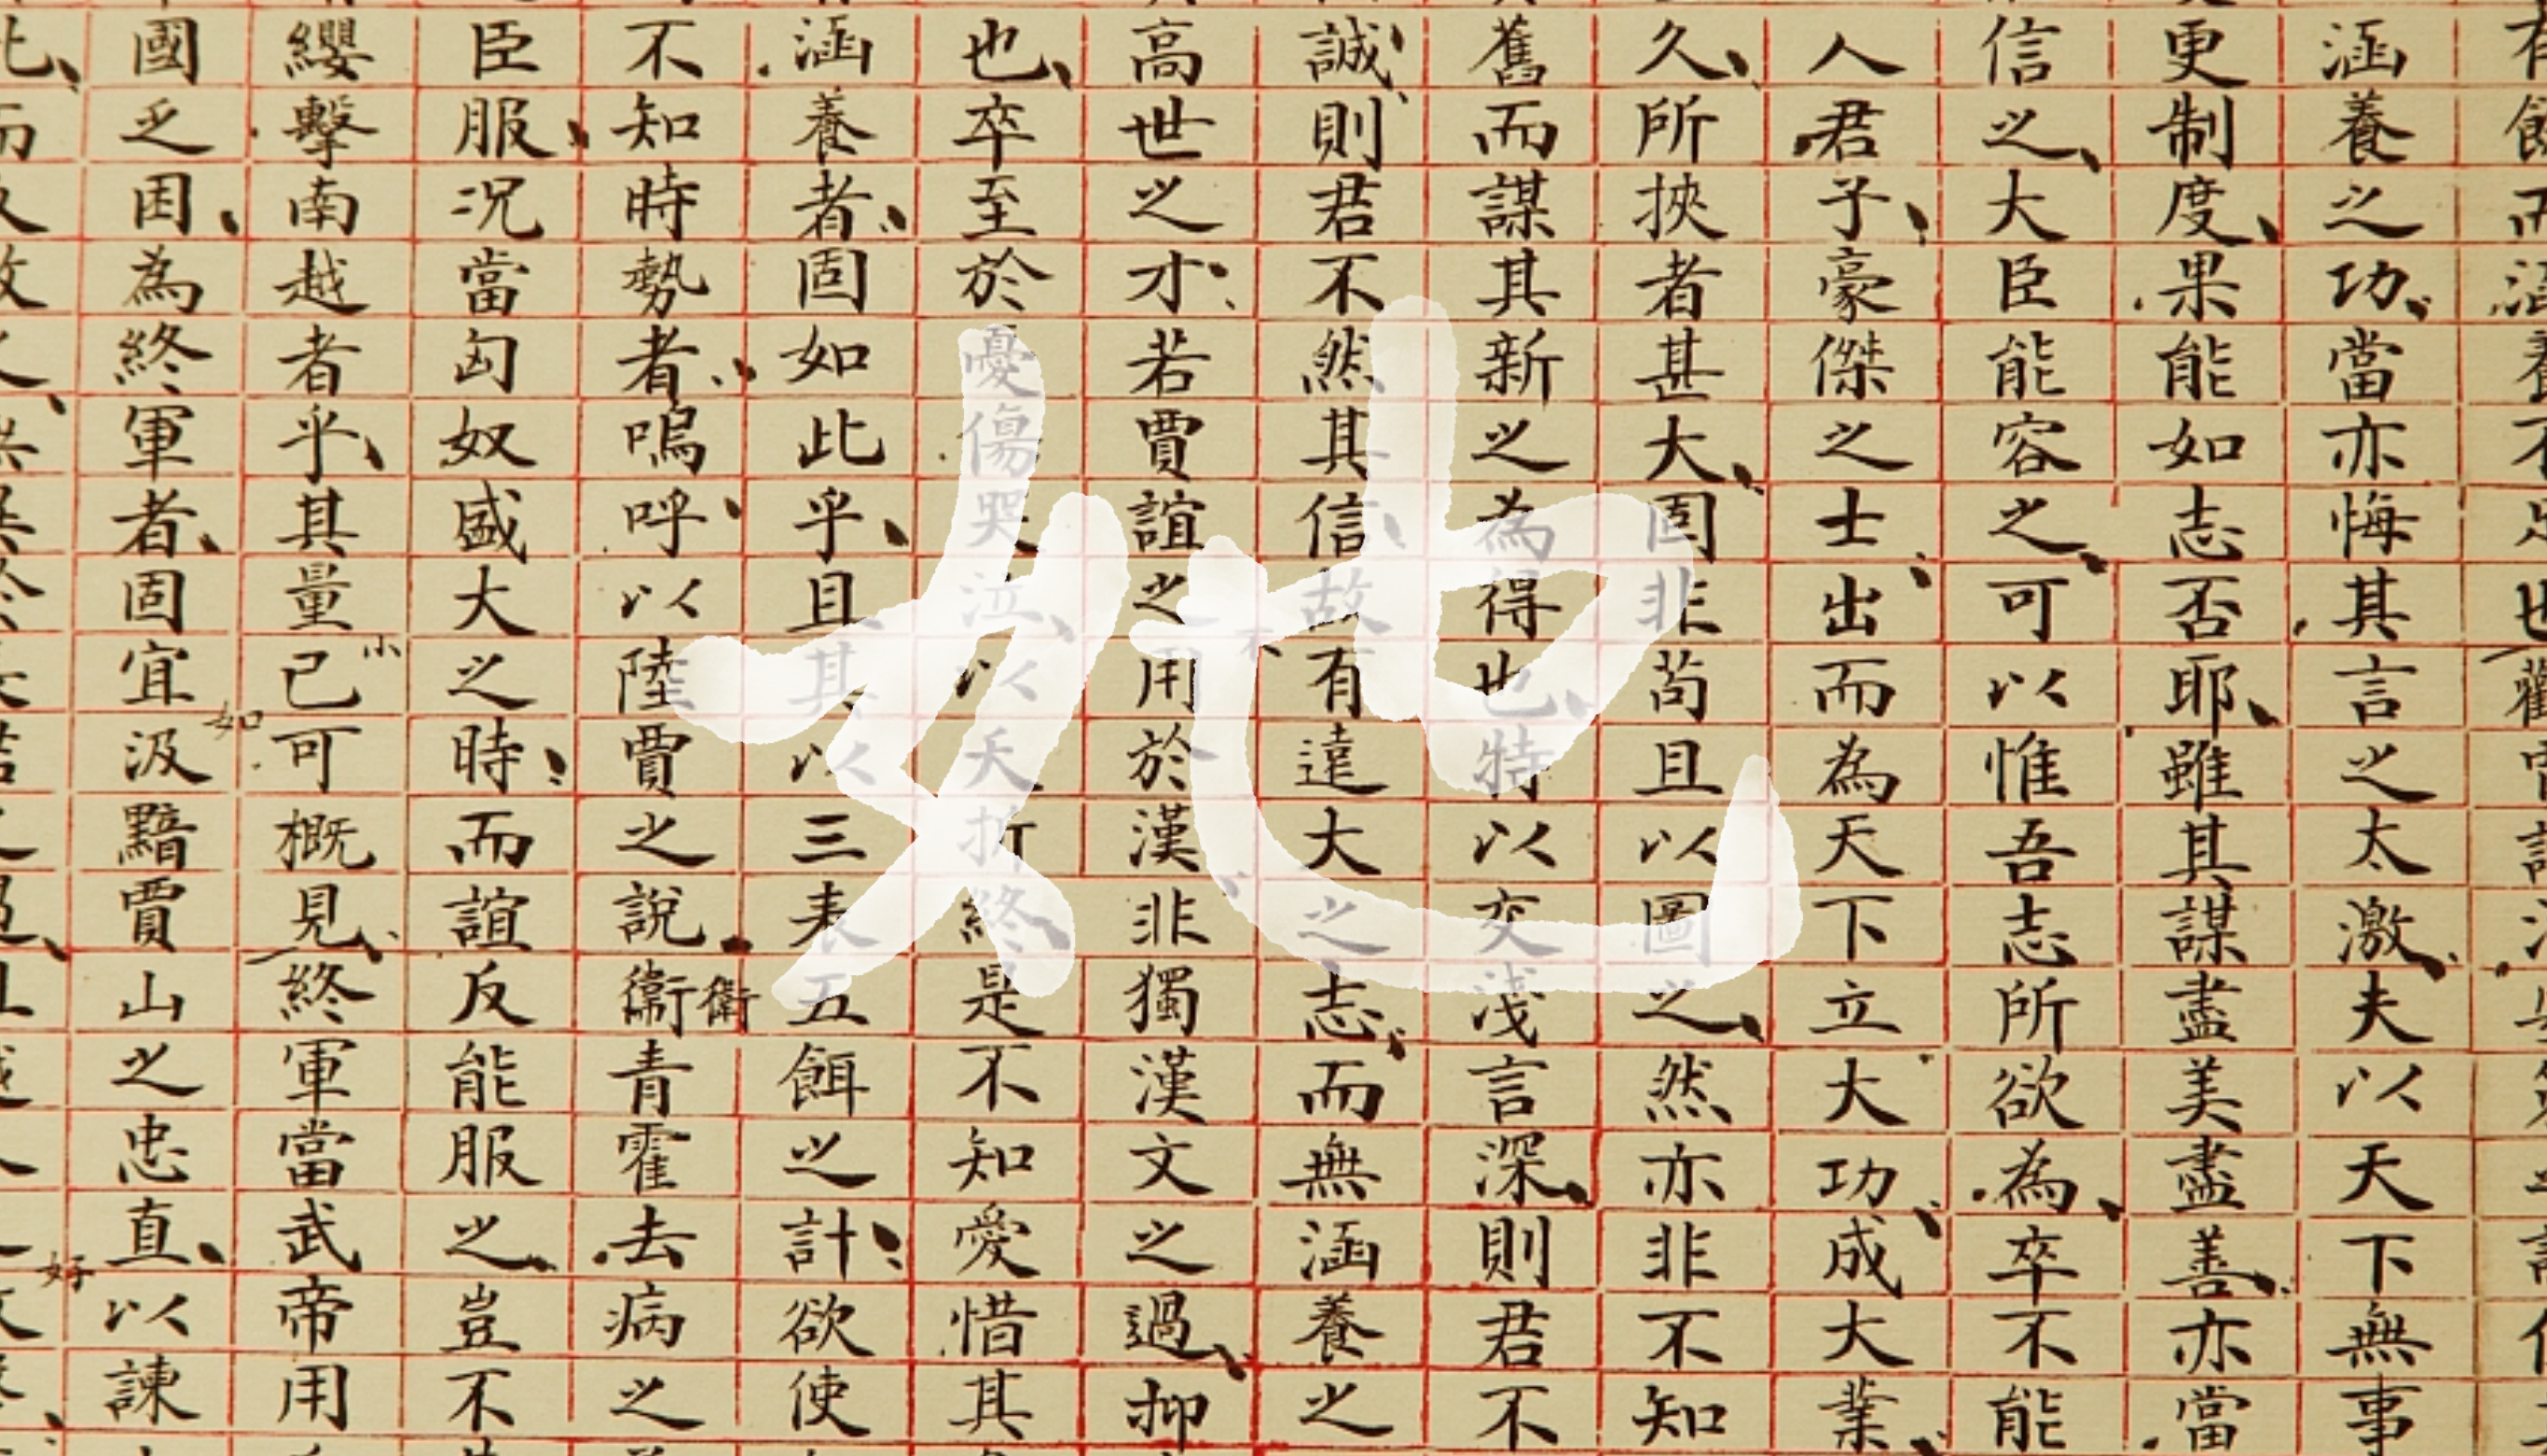 涵養之功、當亦悔其言之太激、夫以天下無事
更制度、果能如志否耶、雖其謀盡美盡善、亦當
信之、大臣能容之、可以惟吾志所欲為、卒不能
人君子、豪傑之士、出而為天下立大功、成大業、
久、所挾者甚大、固非苟且以圖之、然亦非不知
舊而謀其新之為得也、特以交淺言深、則君不
誠、則君不然其信、故有遠大之志、而無涵養之
高世之才、若賈誼之用於漢、非獨漢文之過、抑
也、卒至於憂傷哭泣、以夭折終、是不知愛惜其
涵養者、固如此乎、且其以三表五餌之計、欲使
不知時勢者、嗚呼、以陸賈之說、衛青霍去病之
臣服、況當匈奴盛大之時、而誼反能服之、豈不
纓擊南越者乎、其量已可概見、終軍當武帝用
國之困、為終軍者、固宜如汲黯賈山之忠直、以諫
她